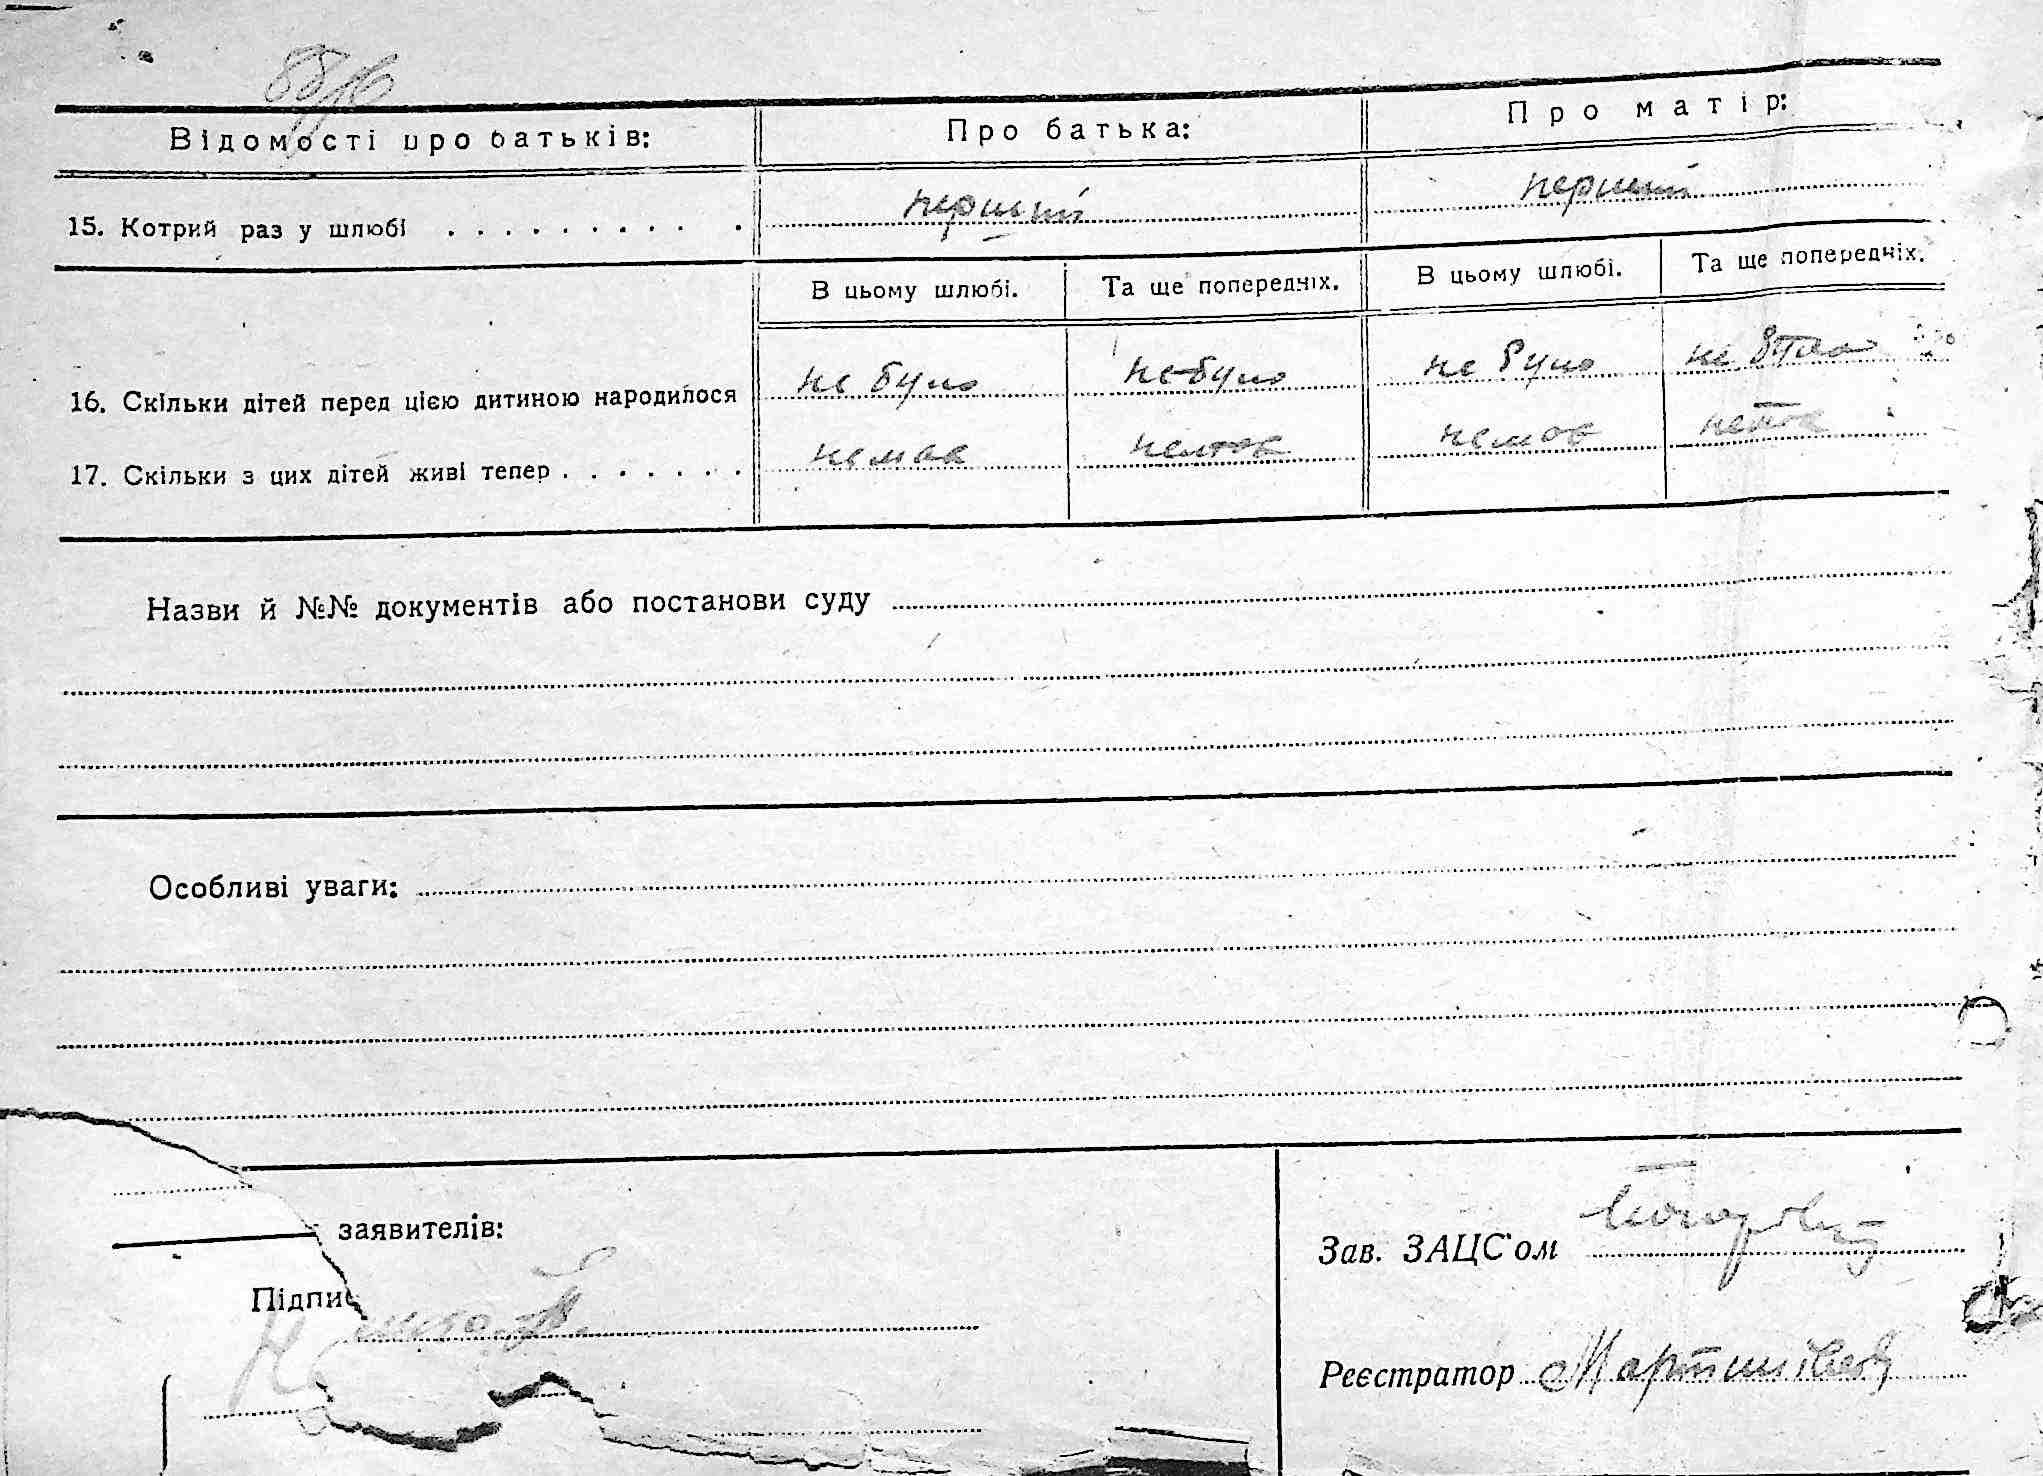 Відомості про батьків: Про батька: Про матір:
15. Котрий раз у шлюбі перший перший
В цьому шлюбі. Та ще попередніх. В цьому шлюбі. Та ще попередніх.
16. Скільки дітей перед цією дитиною народилося не було не було не було не було
17. Скільки з цих дітей живі тепер немає немає немає немає
Назви й №№ документів або постанови суду
Особливі уваги:
заявителів:
Зав. ЗАЦС'ом
Підпис
Реєстратор